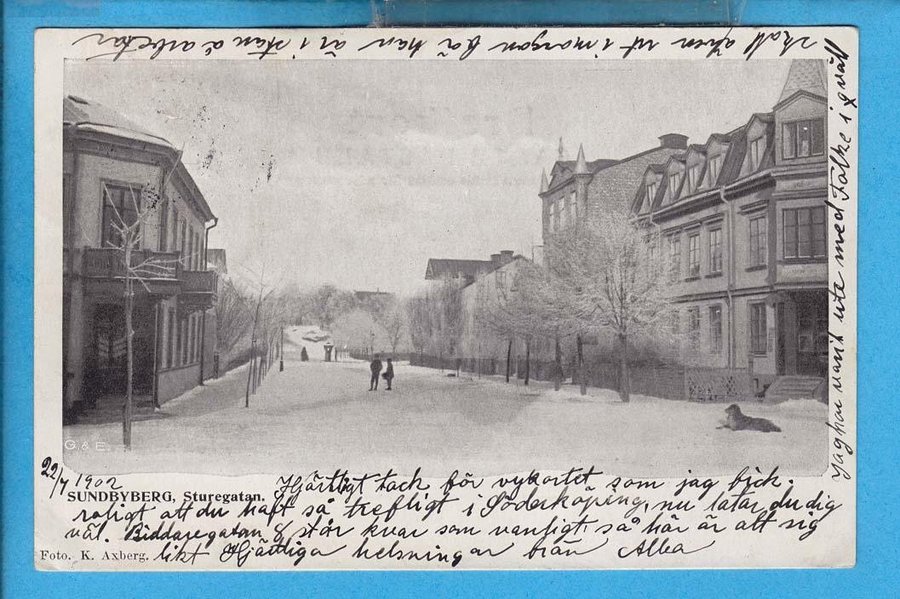 22/4 1902
SUNDBYBERG, Sturegatan.
Hjärtligt tack för vykortet som jag bick.
roligt att du haft så trefligt i Söderköping, nu latar du dig
väl. Biddaregatan 8 står kvar som vanligt så här är att sig
likt Hjärtliga helsningar från Alba
Foto. K. Axberg.
G & E
Jag har varit ute med Falke i qväll
skall även ut i morgon på han är i stan å arbetar